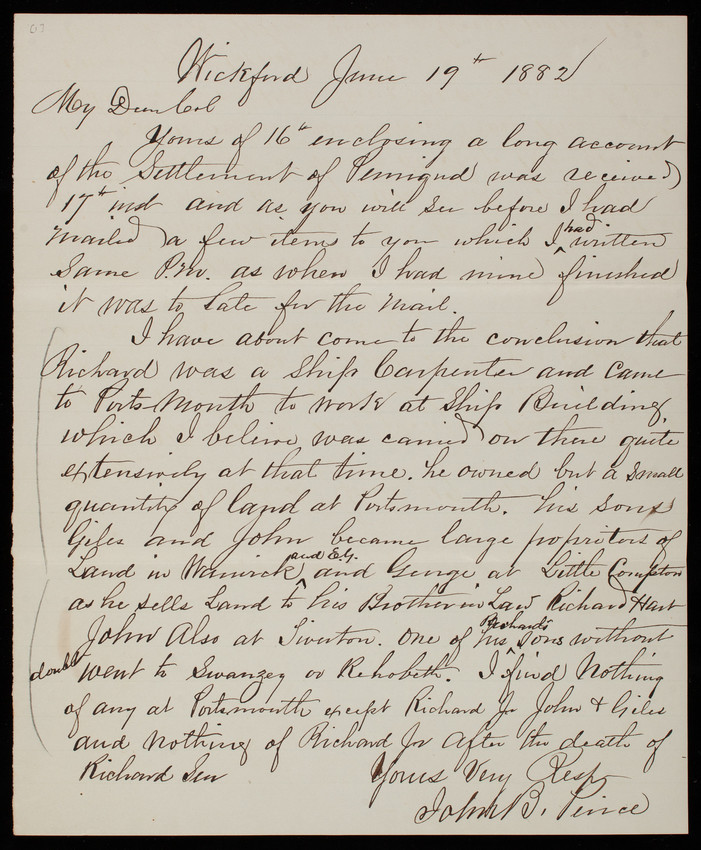 Wickford June 19th 1882
My Dear Col
Yours of 16th enclosing a long account
of the Settlement of Pemiqud was received
17th inst and as you will see before I had
mailed a few items to you which I had written
Same P.M. as when I had mine finished
it was to late for the Mail.
I have about come to the conclusion that
Richard was a Ship Carpenter and came
to Ports-Mouth to work at Ship Building
which I believe was carried on there quite
extensively at that time. he owned but a small
quantity of land at Portsmouth. his sons
Giles and John became large propritors of
Land in Warwick and E.G. and George at Little Compton
as he sells Land to his Brother in Law Richard Hart
John Also at Tiverton. one of his Richard's sons without
doubt went to Swanzey or Rehobeth. I find Nothing
of any at Portsmouth except Richard Jr John & Giles
and nothing of Richard Jr after the death of
Richard Sen
Yours Very Resp
John B. Pierce